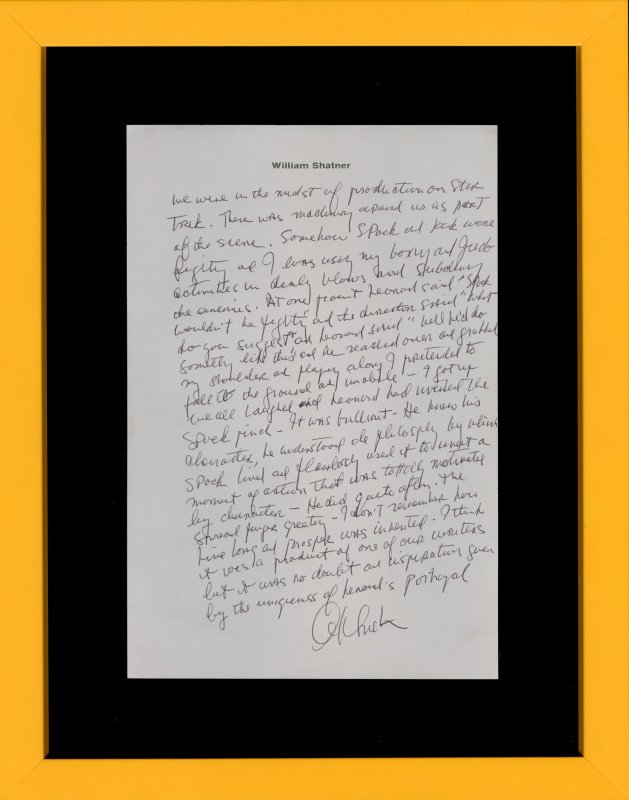 William Shatner
we were in the midst of production on Star
Trek. There was madness around us as part
of the scene. Somehow Spock and Kirk were
fighting and I was using my boxing and Judo
activities in dealing blows and subduing
the enemies. At one point Leonard said "Spock
wouldn't he fight" and the director said "what
do you suggest" and Leonard said "well he'd do
something like this" and he reached over and grabbed
my shoulder and playing along I pretended to
fall to the ground and – I got up
we all laughed and Leonard had invented the
Spock pinch – It was brilliant – He knew his
character, he understood the philosophy by which
Spock lived and flawlessly used it to invent a
moment of action that was totally motivated
by character – He did quite often. The
spread finger greeting – I don't remember how
Live long and prosper was invented. I think
it was a product of one of our writers
but it was no doubt an inspiration given
by the uniqueness of Leonard's portrayal